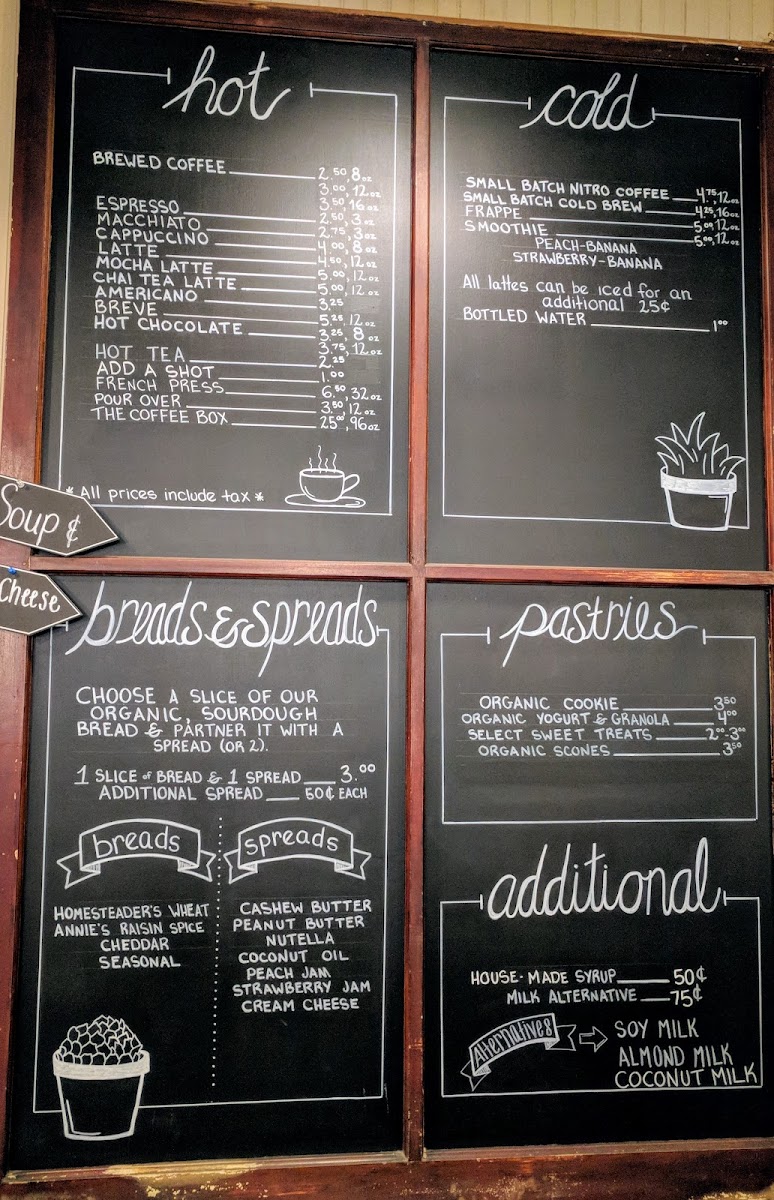 hot
BREWED COFFEE 2.50, 8oz
3.00, 12oz
3.50, 16oz
ESPRESSO 2.50, 3oz
MACCHIATO 2.75, 3oz
CAPPUCCINO 4.00, 8oz
LATTE 4.50, 12oz
MOCHA LATTE 5.00, 12oz
CHAI TEA LATTE 5.00, 12oz
AMERICANO 3.25
BREVE 5.25, 12oz
HOT CHOCOLATE 3.25, 8oz
3.75, 12oz
HOT TEA 2.25
ADD A SHOT 1.00
FRENCH PRESS 6.50, 32oz
POUR OVER 3.50, 12oz
THE COFFEE BOX 25.00, 96oz
*All prices include tax*
cold
SMALL BATCH NITRO COFFEE 4.75, 12oz
SMALL BATCH COLD BREW 4.25, 16oz
FRAPPE 5.00, 12oz
SMOOTHIE 5.00, 12oz
PEACH-BANANA
STRAWBERRY-BANANA
All lattes can be iced for an
additional 25¢
BOTTLED WATER 1.00
Soup &
Cheese
breads & spreads
CHOOSE A SLICE OF OUR
ORGANIC, SOURDOUGH
BREAD & PARTNER IT WITH A
SPREAD (OR 2).
1 SLICE of BREAD & 1 SPREAD 3.00
ADDITIONAL SPREAD 50¢ EACH
breads
HOMESTEADER'S WHEAT
ANNIE'S RAISIN SPICE
CHEDDAR
SEASONAL
spreads
CASHEW BUTTER
PEANUT BUTTER
NUTELLA
COCONUT OIL
PEACH JAM
STRAWBERRY JAM
CREAM CHEESE
pastries
ORGANIC COOKIE 3.50
ORGANIC YOGURT & GRANOLA 4.00
SELECT SWEET TREATS 2.00-3.00
ORGANIC SCONES 3.50
additional
HOUSE-MADE SYRUP 50¢
MILK ALTERNATIVE 75¢
Alternatives
SOY MILK
ALMOND MILK
COCONUT MILK